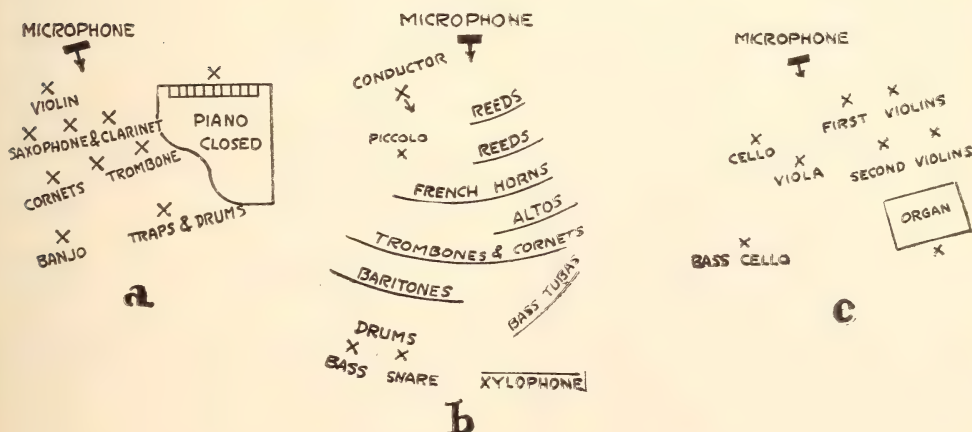 MICROPHONE
VIOLIN
SAXOPHONE & CLARINET
TROMBONE
CORNETS
TRAPS & DRUMS
BANJO
PIANO
CLOSED
a
MICROPHONE
CONDUCTOR
PICCOLO
REEDS
REEDS
FRENCH HORNS
ALTOS
TROMBONES & CORNETS
BARITONES
BASS TUBAS
DRUMS
BASS SNARE
XYLOPHONE
b
MICROPHONE
FIRST VIOLINS
CELLO
VIOLA
SECOND VIOLINS
ORGAN
BASS CELLO
c